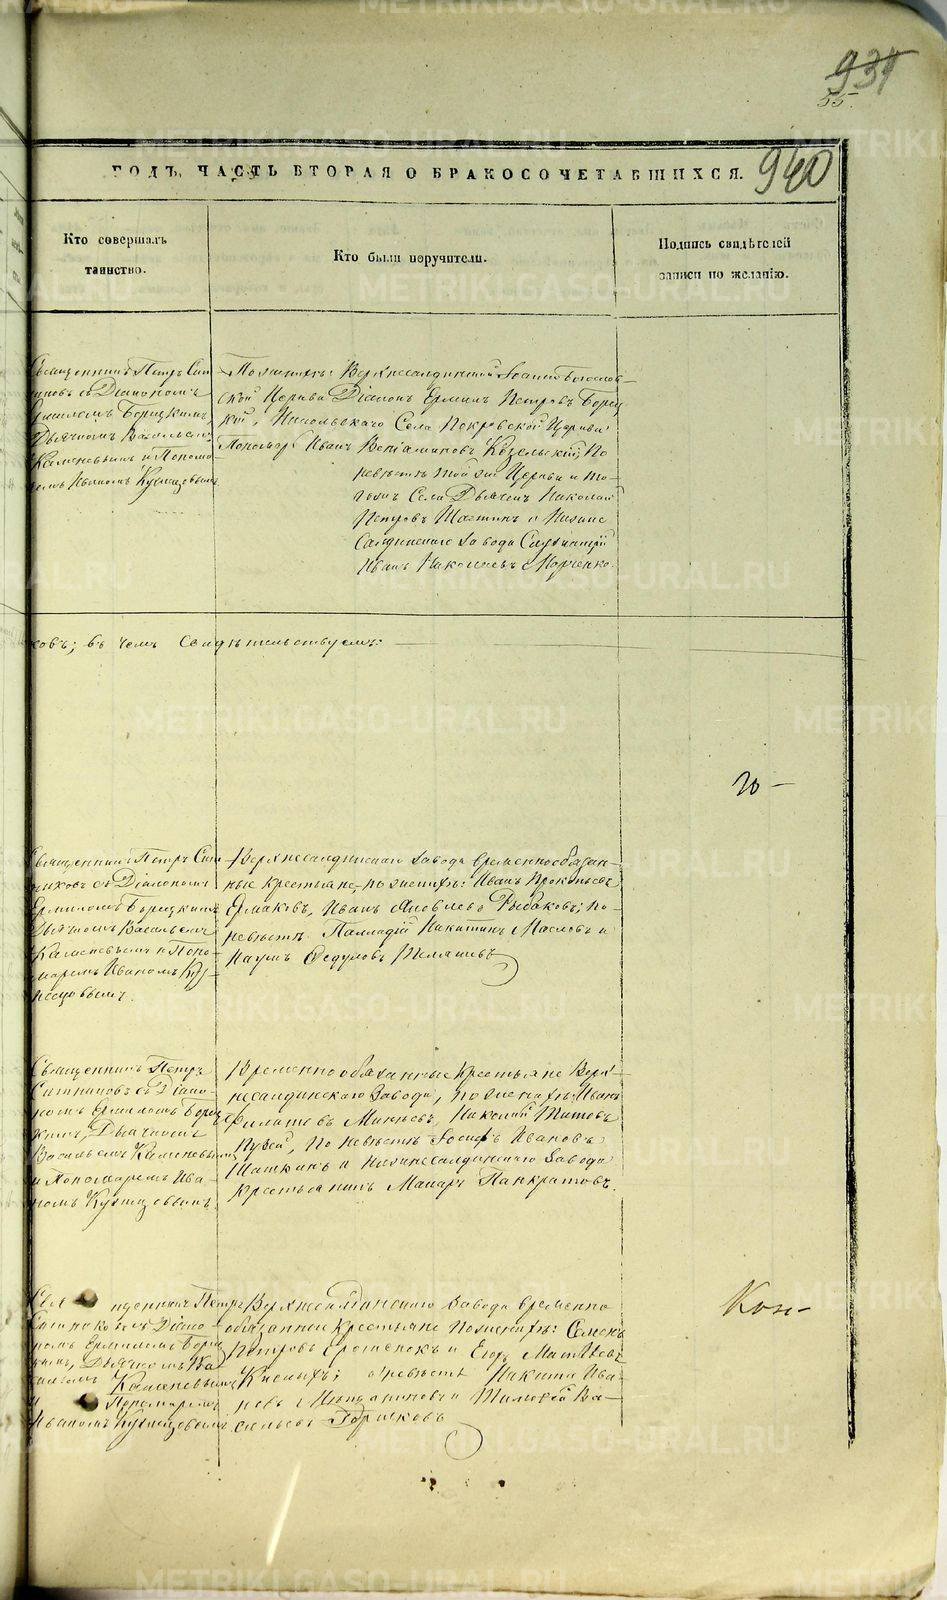 931
55.
940
ГОДЪ, ЧАСТЬ ВТОРАЯ О БРАКОСОЧЕТАВШИХСЯ.
Кто совершалъ
таинство.
Кто были поручители.
Подпись свидѣтелей
записи по желанію.
Священникъ Петръ Сит
никовъ съ Діакономъ
Ермиломъ Борецкимъ,
Дьячкомъ Васильемъ
Каменевымъ и Понома
ремъ Иваномъ Кузнецовымъ
По женихѣ: Верхнесалдинской Іоанно Богослов-
ской Церкви Діаконъ Ермилъ Петровъ Борец
кій, Никольскаго Села Покровской Церкви
Пономарь Иванъ Веніаминовъ Козельскій; По
невѣстѣ той же Церкви и то-
гожъ Села Дьячекъ Николай
Петровъ и Нижне
Салдинскаго завода Служитель
Иванъ Николаевъ
ковъ; въ чемъ свидѣтельствуемъ:
Священникъ Петръ Сит
никовъ съ Діакономъ
Ермиломъ Борецкимъ
Дьячкомъ Васильемъ
Каменевымъ и Поно-
маремъ Иваномъ Куз-
нецовымъ.
Верхнесалдинскаго завода временнообязан-
ные крестьяне, по женихѣ: Иванъ Прокопьевъ
Ермаковъ, Иванъ Яковлевъ Рыбаковъ; по
невѣстѣ Палладій Никитинъ Масловъ и
Наумъ Федуловъ
Священникъ Петръ
Ситниковъ съ Діако-
номъ Ермиломъ Борец
кимъ, Дьячкомъ
Васильемъ Каменевымъ
и Пономаремъ Ива-
номъ Кузнецовымъ.
Временнообязанные крестьяне Верх-
несалдинскаго Завода, по женихѣ: Иванъ
Филатовъ Николай Титовъ
по невѣстѣ Іосифъ Ивановъ
Шашкинъ и Нижнесалдинскаго Завода
Крестьянинъ Макаръ Панкратовъ.
Священникъ Петръ
Ситниковъ съ Діако-
номъ Ермиломъ Борец
кимъ, Дьячкомъ Ва
сильемъ Каменевымъ
и Пономаремъ
Иваномъ Кузнецовымъ
Верхнесалдинскаго Завода временно
обязанные крестьяне по женихѣ: Семенъ
Петровъ и Егоръ Матвѣевъ
невѣстѣ Никита Ива
новъ и Тимофей Ва-
сильевъ Горшковъ
METRIKI.GASO-URAL.RU